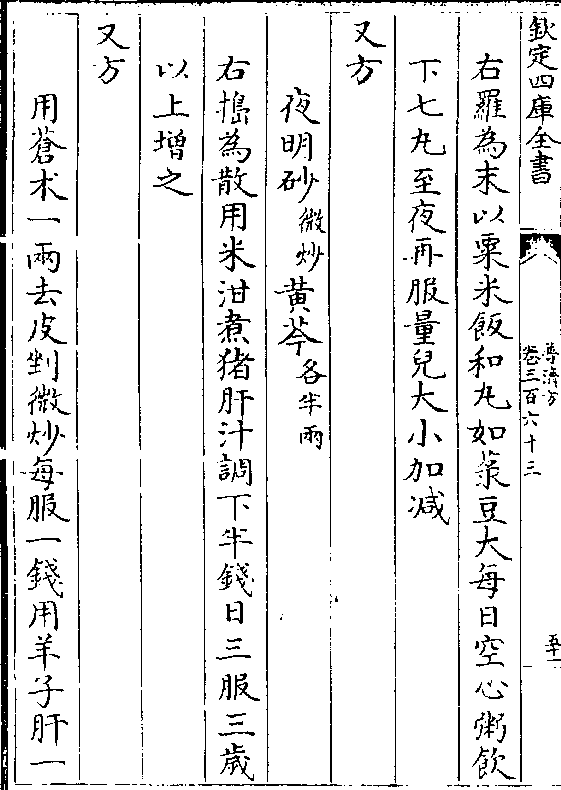 欽定四庫全書
普濟方
卷三百六十三
五十一
右羅為末以粟米飯和丸如菉豆大每日空心粥飲
下七丸至夜再服量兒大小加减
又方
夜明砂微炒黄芩各半兩
右搗為散用米泔煮猪肝汁調下半錢日三服三歲
以上增之
又方
用蒼术一兩去皮剉微炒每服一錢用羊子肝一